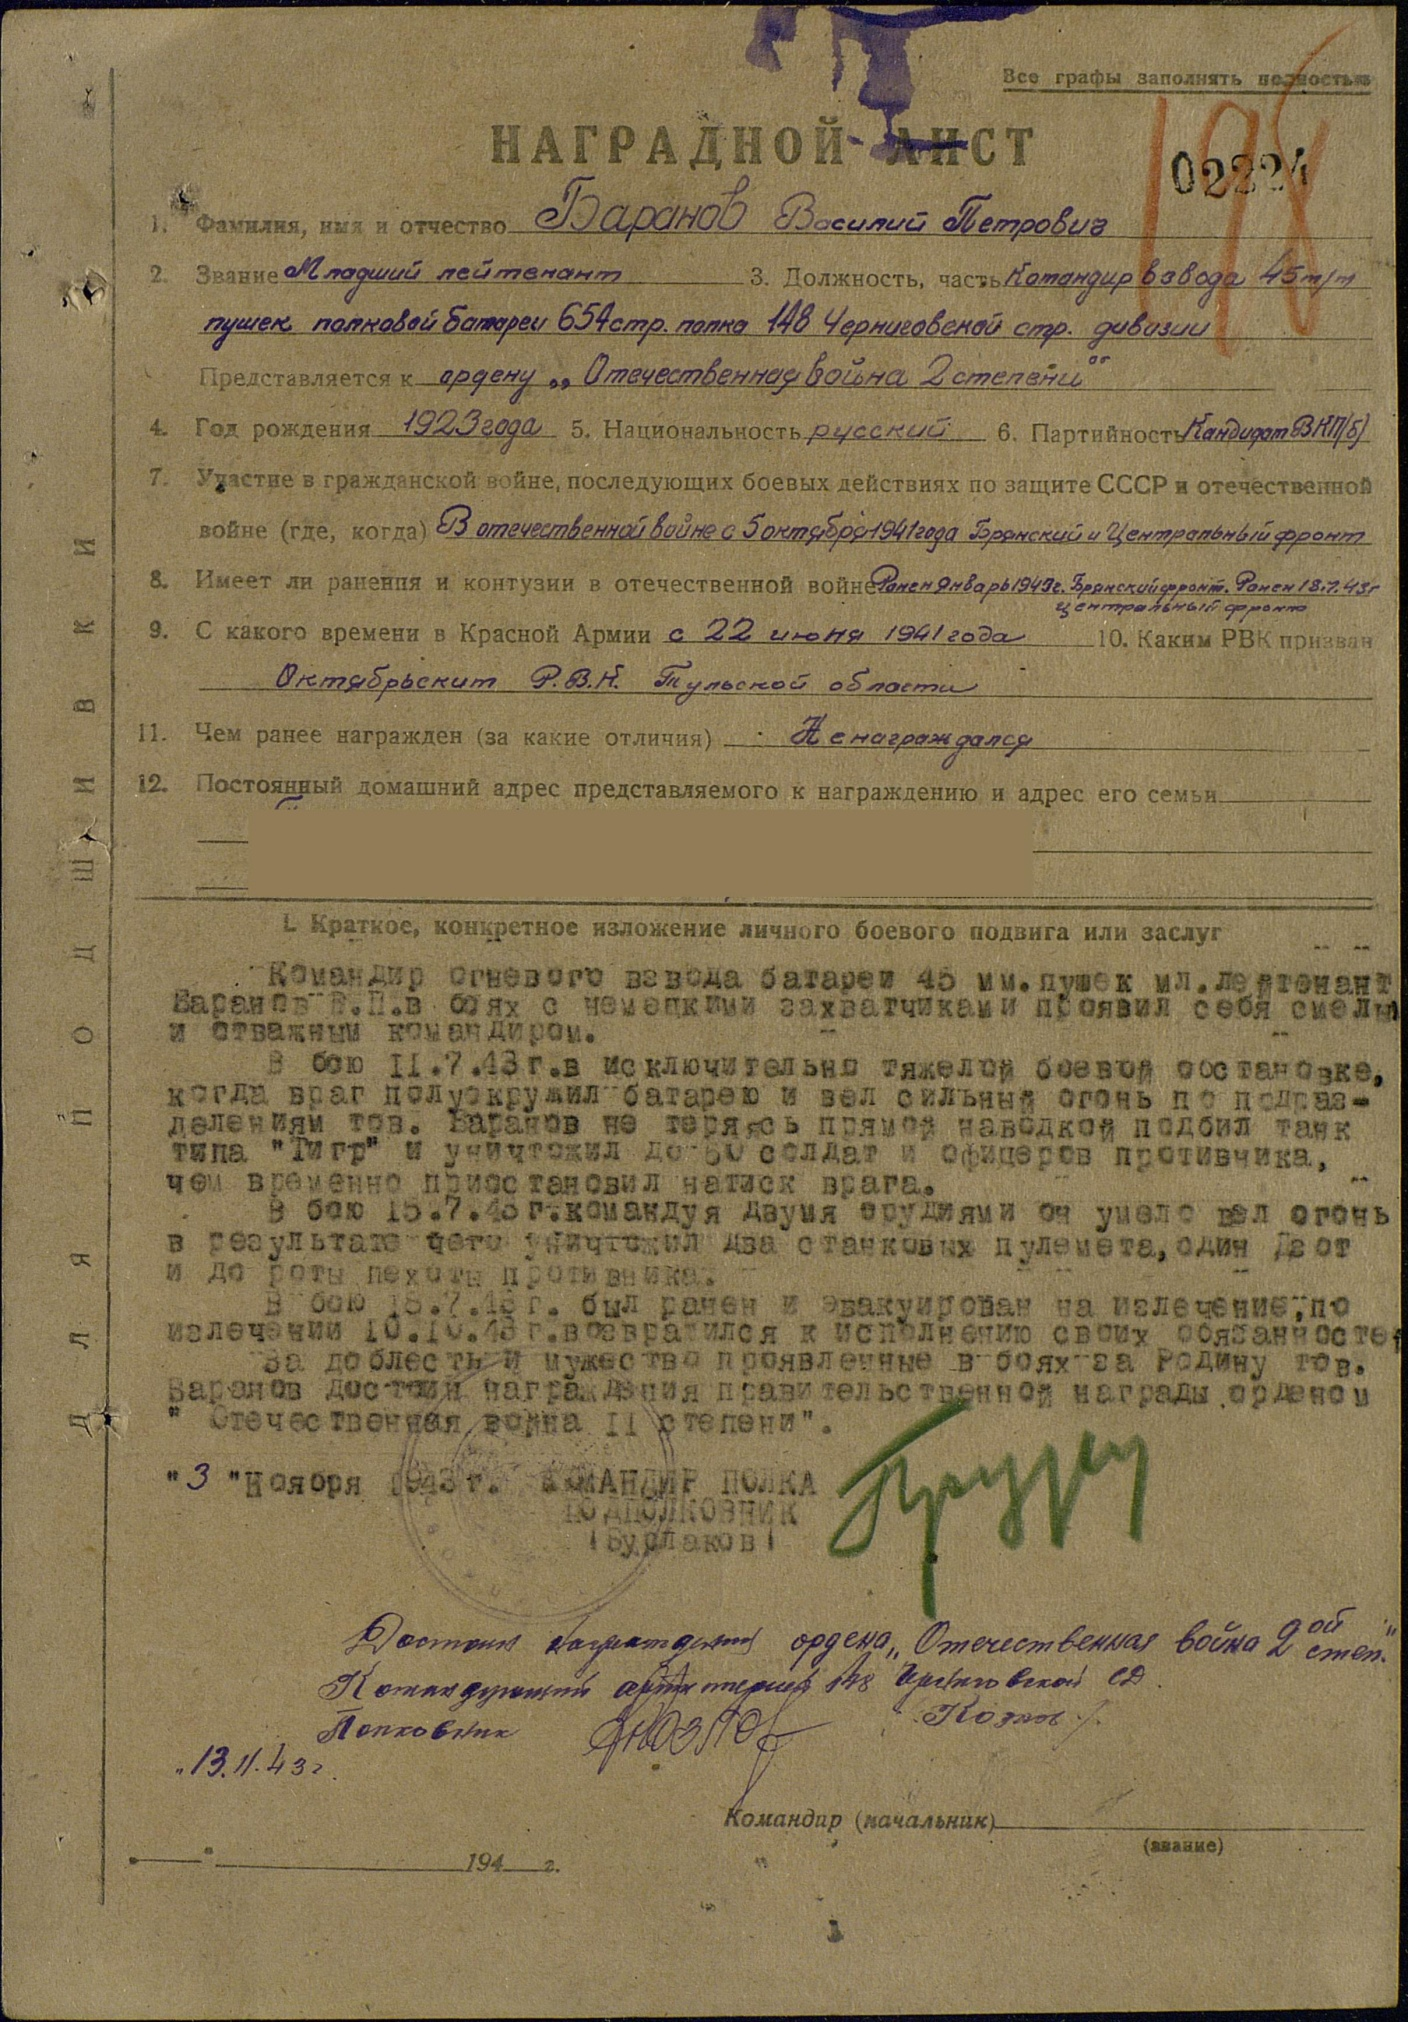 Все графы заполнять полностью
НАГРАДНОЙ ЛИСТ
02224
198
1. Фамилия, имя и отчество Баранов Василий Петрович
2. Звание Младший лейтенант 3. Должность, часть Командир взвода 45 м/м
пушек полковой батареи 654 стр. полка 148 Черниговской стр. дивизии
Представляется к ордену „Отечественная война 2 степени"
4. Год рождения 1923 года 5. Национальность русский 6. Партийность Кандидат ВКП(б)
7. Участие в гражданской войне, последующих боевых действиях по защите СССР и отечественной
войне (где, когда) В отечественной войне с 5 октября 1941 года Брянский и Центральный фронт
8. Имеет ли ранения и контузии в отечественной войне Ранен январь 1943 г. Брянский фронт. Ранен 18.7.43 г
Центральный фронт
9. С какого времени в Красной Армии с 22 июня 1941 года 10. Каким РВК призван
Октябрьским Р.В.К. Тульской области
11. Чем ранее награжден (за какие отличия) Не награждался
12. Постоянный домашний адрес представляемого к награждению и адрес его семьи
I. Краткое, конкретное изложение личного боевого подвига или заслуг
Командир огневого взвода батареи 45 мм. пушек мл. лейтенант
Баранов В.П. в боях с немецкими захватчиками проявил себя смелым
и отважным командиром.
В бою 11.7.43 г. в исключительно тяжелой боевой обстановке,
когда враг полуокружил батарею и вел сильный огонь по подраз-
делениям тов. Баранов не теряясь прямой наводкой подбил танк
типа "Тигр" и уничтожил до 50 солдат и офицеров противника,
чем временно приостановил натиск врага.
В бою 15.7.43 г. командуя двумя орудиями он умело вел огонь
в результате чего уничтожил два станковых пулемета, один Дзот
и до роты пехоты противника.
В бою 18.7.43 г. был ранен и эвакуирован на излечение, по
излечении 10.10.43 г. возвратился к исполнению своих обязанностей
За доблесть и мужество проявленные в боях за Родину тов.
Баранов достоин награждения правительственной награды орденом
" Отечественная война II степени".
"3 "Ноября 1943 г. КОМАНДИР ПОЛКА
ПОДПОЛКОВНИК
(Бурлаков)
Достоин награждения ордена „Отечественная война 2ой степ."
Командующий артиллерией 148 Черниговской СД.
Полковник Козлов
„13.11.43 г.
Командир (начальник)
(звание)
194 г.
ДЛЯ ПОДШИВКИ